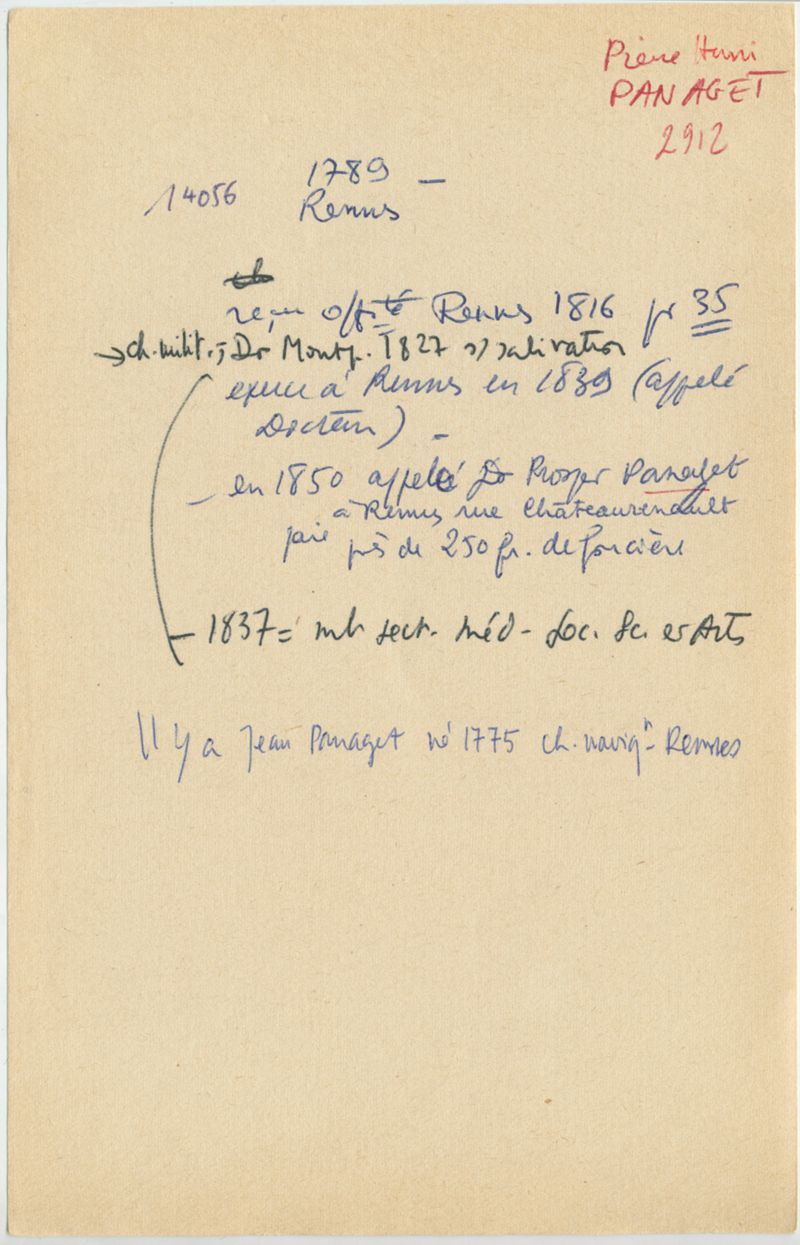 Pierre Henri
PANAGET
2912
1789 –
14056
Rennes
ch
reçu off. té Rennes 1816 pr 35
→ ch. milit. ; Dr Montp. 1827 s/ salivation
exerce à Rennes en 1839 (appelé
Docteur) –
– en 1850 appelé Dr Prosper Panaget
à Rennes rue Châteaurenault
paie près de 250 fr. de foncière
– 1837 = mb sect. méd – Soc. Sc. et Arts
Il y a Jean Panaget né 1775 ch. navig.n Rennes